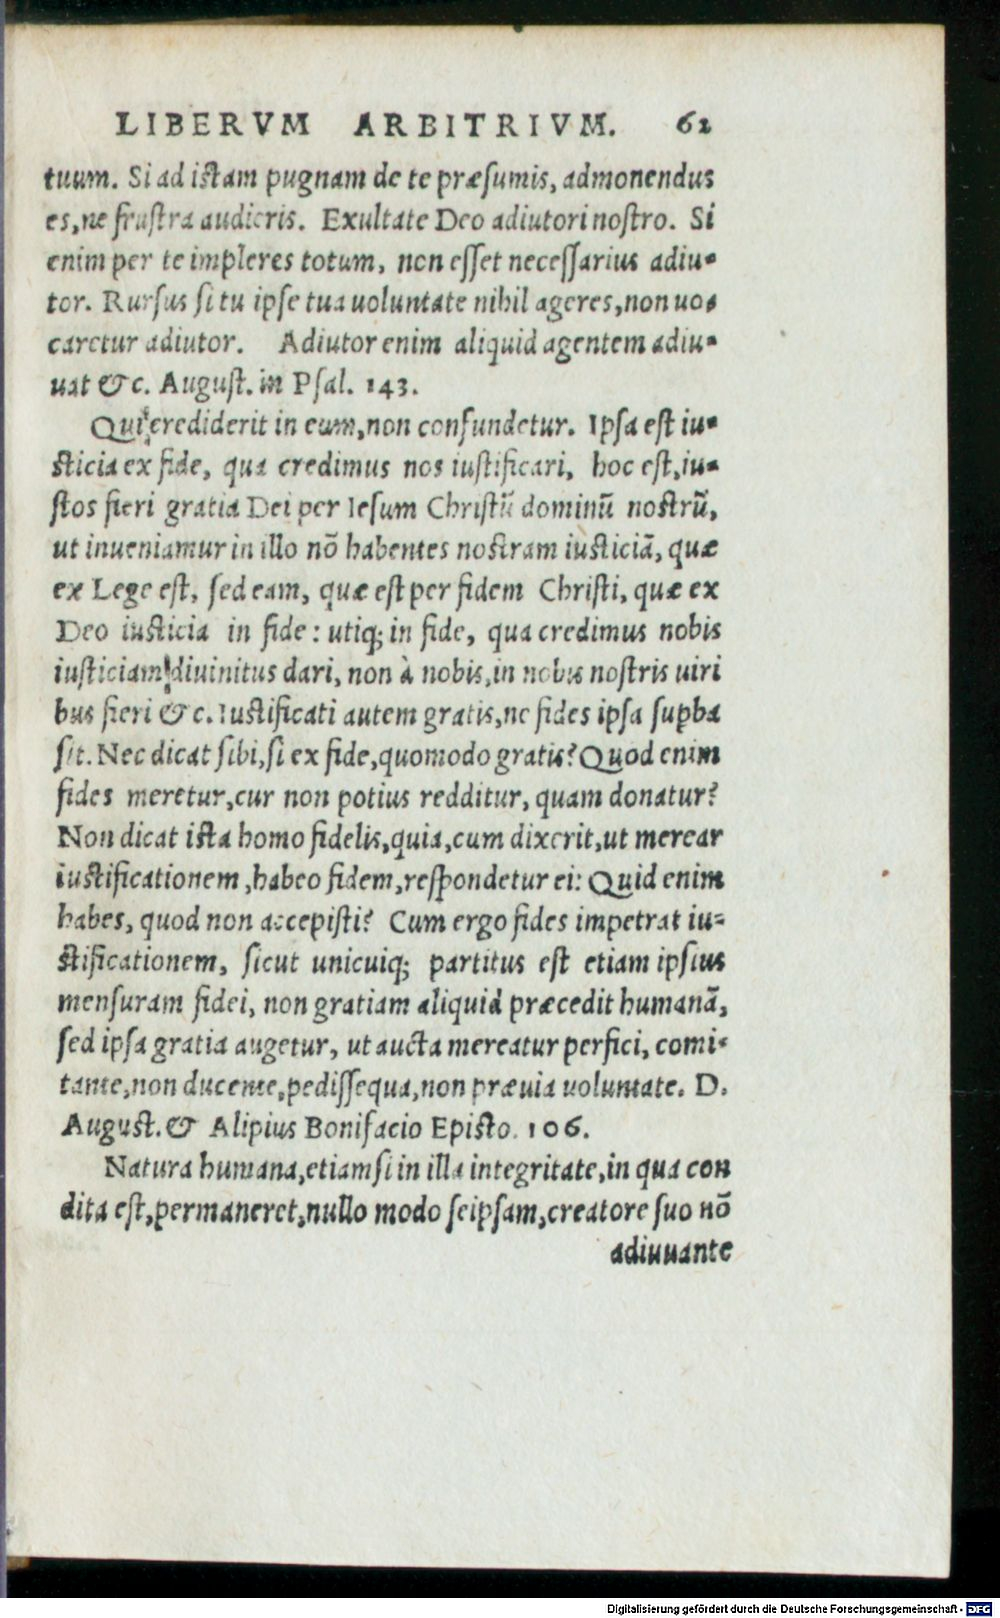 LIBERVM ARBITRIVM. 62
tuum. Si ad istam pugnam de te præsumis, admonendus
es, ne frustra audieris. Exultate Deo adiutori nostro. Si
enim per te impleres totum, non esset necessarius adiu-
tor. Rursus si tu ipse tua uoluntate nihil ageres, non uo-
caretur adiutor. Adiutor enim aliquid agentem adiu-
uat &c. August. in Psal. 143.
Qui crediderit in eum, non confundetur. Ipsa est iu-
sticia ex fide, qua credimus nos iustificari, hoc est, iu-
stos fieri gratia Dei per Iesum Christũ dominũ nostrũ,
ut inueniamur in illo nõ habentes nostram iusticiã, quæ
ex Lege est, sed eam, quæ est per fidem Christi, quæ ex
Deo iusticia in fide: utiq; in fide, qua credimus nobis
iusticiam diuinitus dari, non à nobis, in nobis nostris uiri
bus fieri &c. Iustificati autem gratis, ne fides ipsa suꝑba
sit. Nec dicat sibi, si ex fide, quomodo gratis? Quod enim
fides meretur, cur non potius redditur, quam donatur?
Non dicat ista homo fidelis, quia, cum dixerit, ut merear
iustificationem, habeo fidem, respondetur ei: Quid enim
habes, quod non accepisti? Cum ergo fides impetrat iu-
stificationem, sicut unicuiq; partitus est etiam ipsius
mensuram fidei, non gratiam aliquid præcedit humanã,
sed ipsa gratia augetur, ut aucta mereatur perfici, comi-
tante, non ducente, pedissequa, non præuia uoluntate. D.
August. & Alipius Bonifacio Episto. 106.
Natura humana, etiamsi in illa integritate, in qua con
dita est, permaneret, nullo modo seipsam, creatore suo nõ
adiuuante
Digitalisierung gefördert durch die Deutsche Forschungsgemeinschaft - DFG